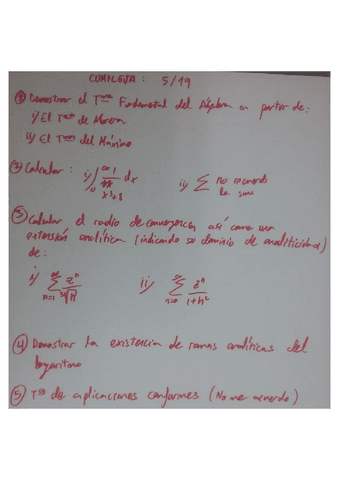 COMPLEJA : 5/19
① Demostrar el Tma Fundamental del Álgebra a partir de:
i) El Tma de Morera
ii) El Tma del Máximo
② Calcular : i) ∫₀^∞ 1/(x³+8) dx ii) ∑ no recuerdo la suma
③ Calcular el radio de convergencia así como una
extensión analítica (indicando su dominio de analiticidad)
de:
i) ∑ n=1 ∞ zⁿ/∛n ii) ∑ n=0 ∞ zⁿ/(1+n²)
④ Demostrar la existencia de ramas analíticas del
logaritmo
⑤ Tma de aplicaciones conformes (No me acuerdo)